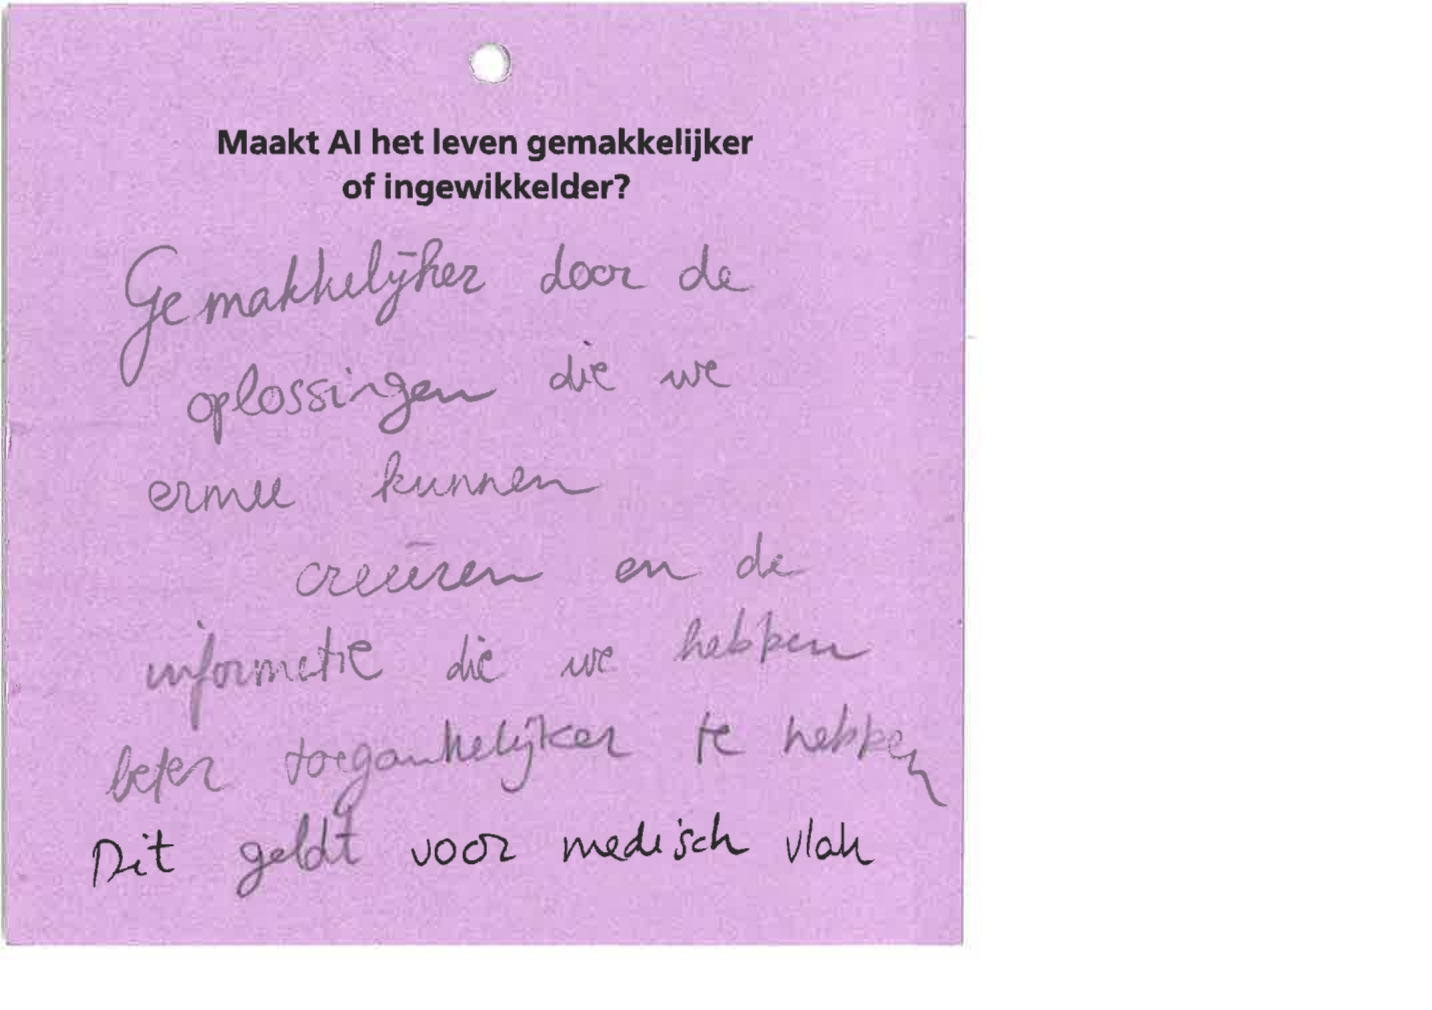 Maakt AI het leven gemakkelijker
of ingewikkelder?
Gemakkelijker door de
oplossingen die we
ermee kunnen
creëeren en de
informatie die we hebben
beter toegankelijker te hebben
Dit geldt voor medisch vlak